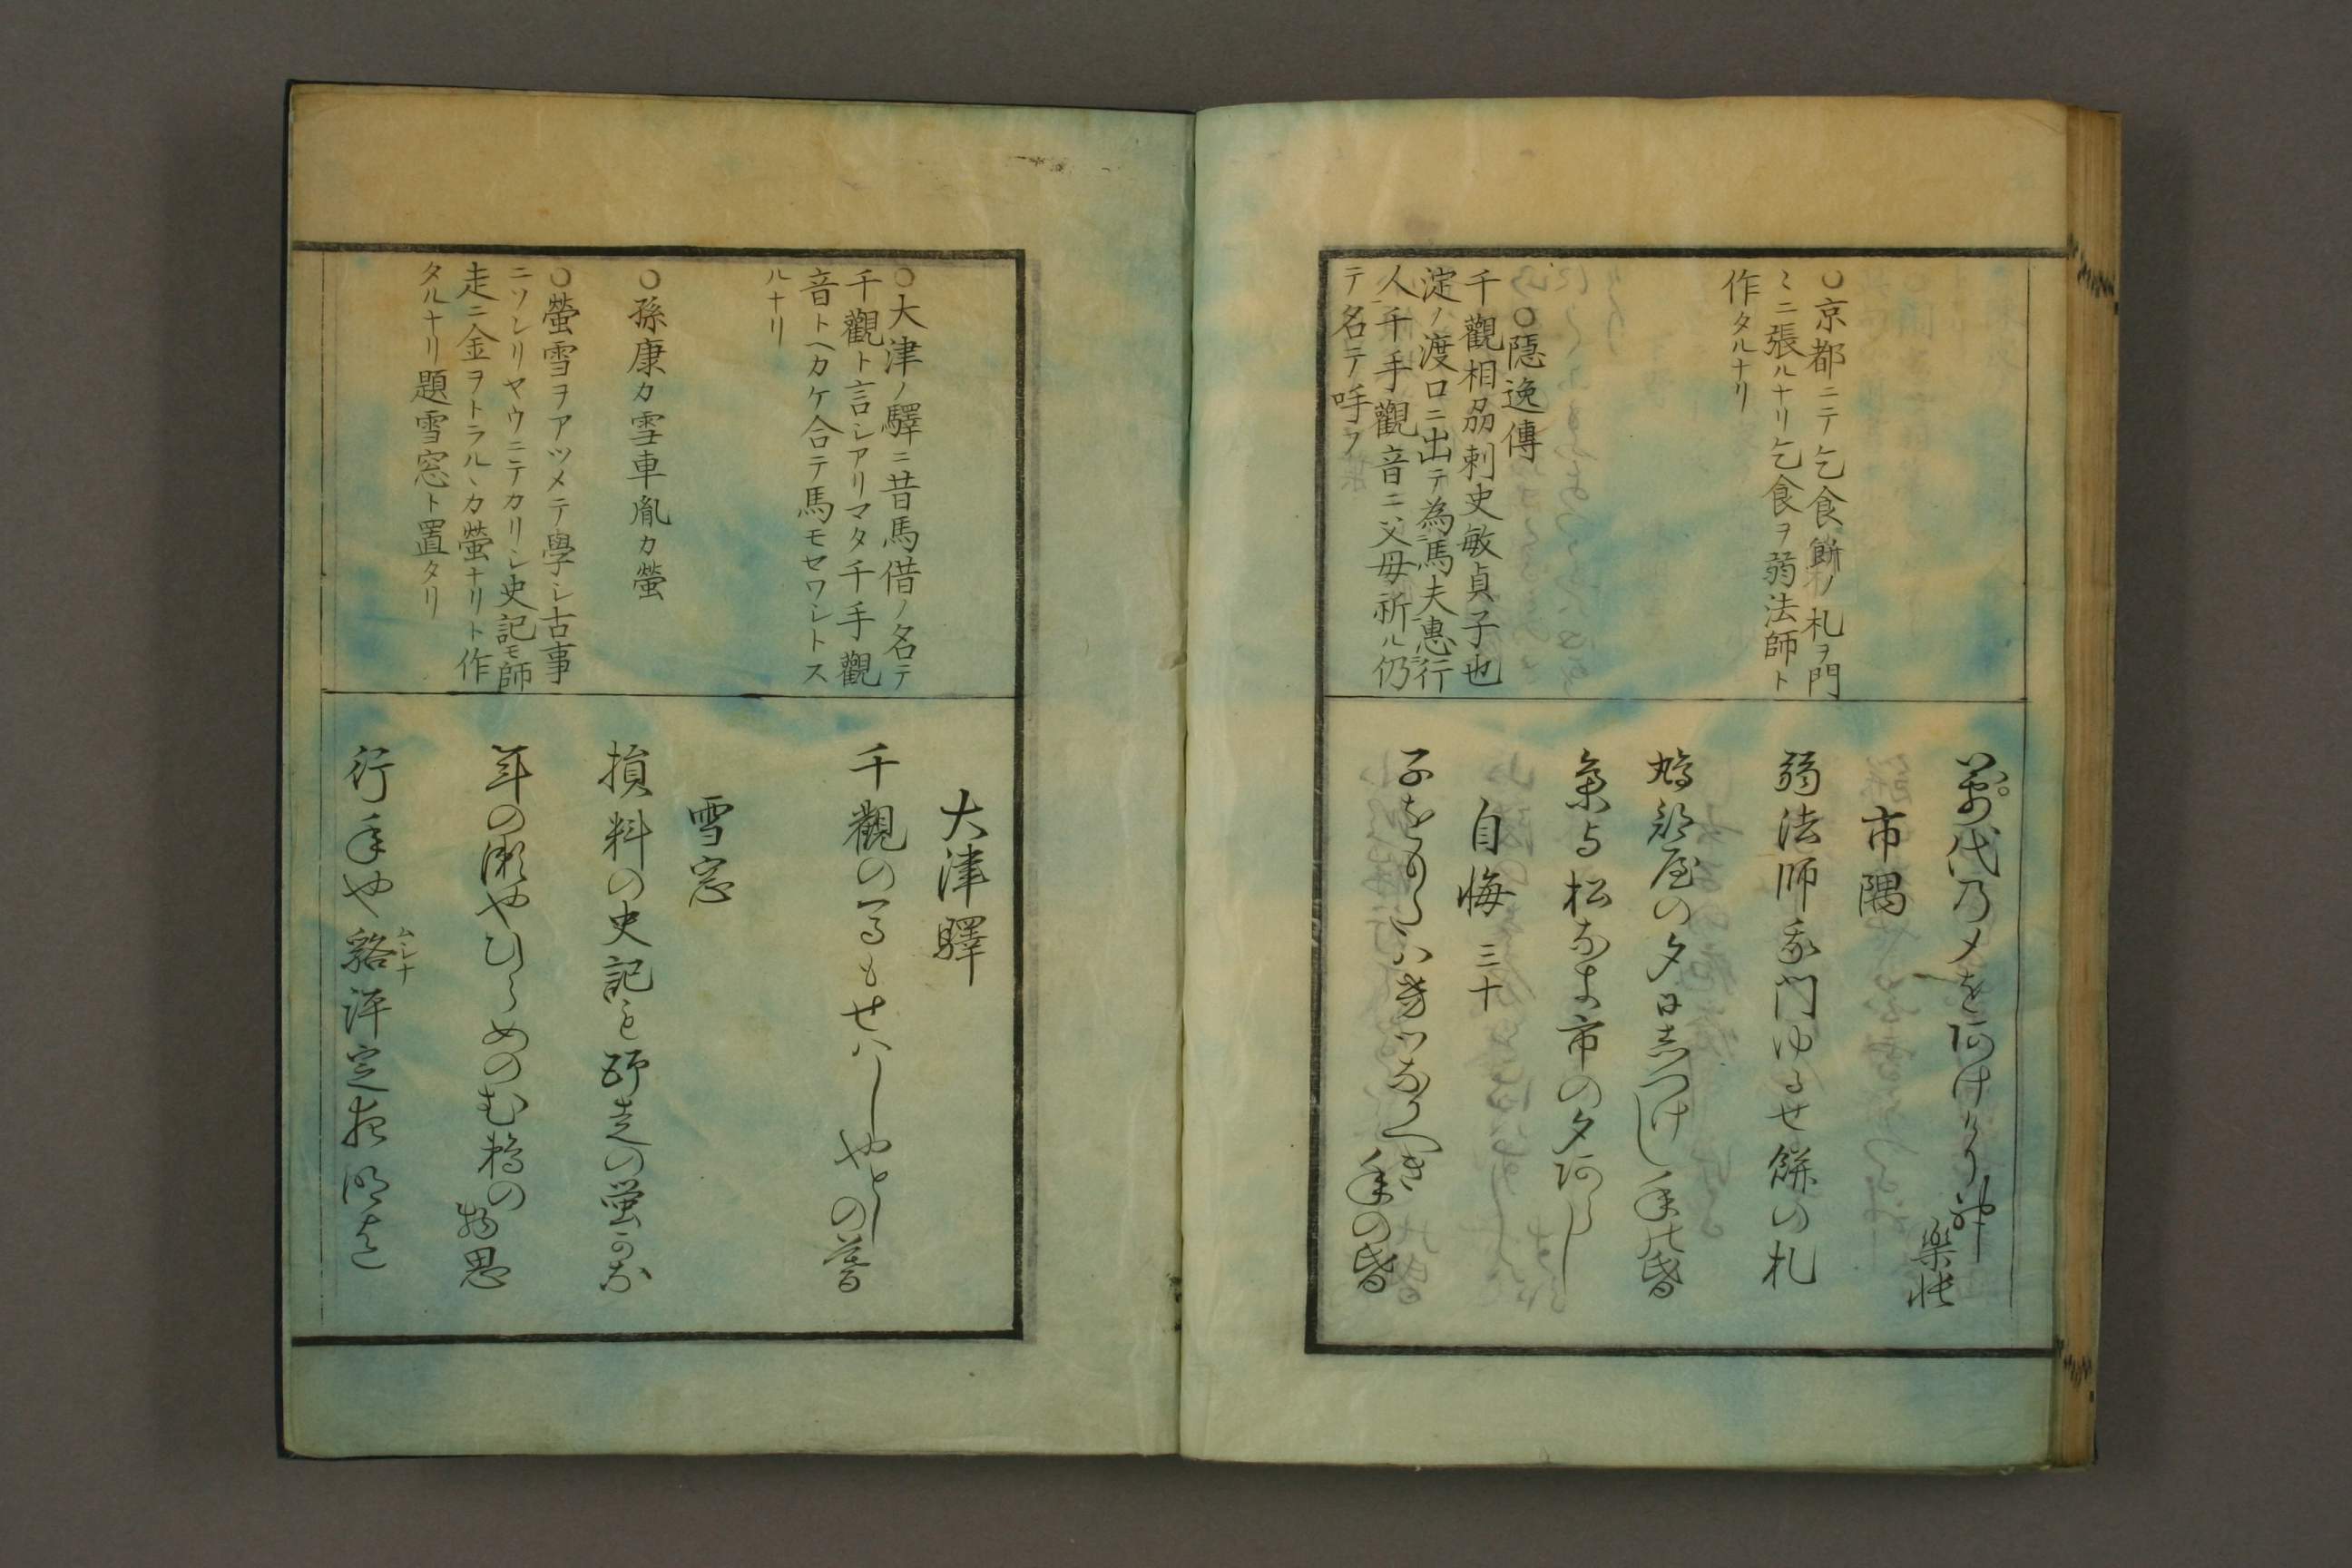 ○京都ニテ乞食餅ノ札ヲ門
〻ニ張ルナリ乞食ヲ弱法師ト
作タルナリ
○隱逸傳
千觀相刕刺史敏貞子也
淀ノ渡口ニ出テ為馬夫惠行
人千手觀音ニ父母祈ル仍
テ名テ呼フ
萬代乃〆を
市隅
弱法師我門ゆるせ餅の札
鳩部屋の夕日しつけし年の昏
松なき市の夕あらし
自悔 三十
子をもたはいくつなるへき年の昏
○大津ノ驛ニ昔馬借ノ名テ
千觀ト言シアリマタ千手觀
音トヘカケ合テ馬モセワシトス
ルナリ
○孫康カ雪車胤カ螢
○螢雪ヲアツメテ學シ古事
ニソンリヤウニテカリシ史記モ師
走ニ金ヲトラルヽカ螢ナリト作
タルナリ題雪窓ト置タリ
大津驛
千觀の馬もせはしやとしの暮
雪窓
損料の史記も師走の螢かな
年の瀬やひらめのむ鵜の物思
行年や貉評定夜明まて
ムシナ